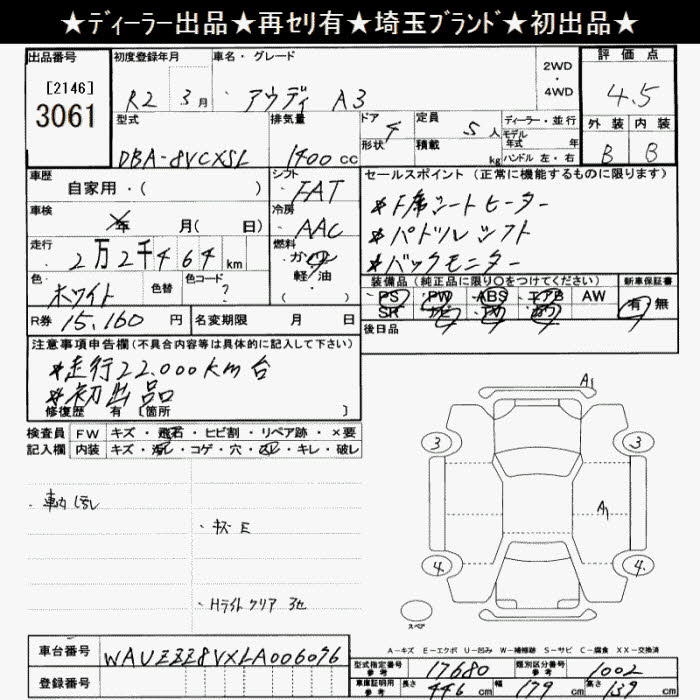 ★ディーラー出品★再セリ有★埼玉ブランド★初出品★
出品番号 初度登録年月 車名・グレード 2WD・4WD 評価点
[2146]
3061
R2 3月 アウディ A3 4.5
型式 排気量 ドア 4 定員 5人 ディーラー・並行
形状 積載 kg モデル年式 年
ハンドル 左・右
外装 内装
DBA-8VCXSL 1400cc B B
車歴 自家用・( ) シフト FAT
セールスポイント(正常に機能するものに限ります)
車検 年 月( 日) 冷房 AAC
*F席シートヒーター
*パドルシフト
*バックモニター
走行 2万2千464km 燃料 ガソリン 軽・油 ( )
色 ホワイト 色替 色コード ?
装備品(純正品に限り○をつけてください) 新車保証書
PS PW ABS エアB AW 有 無
SR ナビ
R券 15,160円 名変期限 月 日
後日品
注意事項申告欄(不具合内容等は具体的に記入して下さい)
*走行22.000km台
*初出品
修復歴 有 [箇所 ]
検査員 FW キズ・飛石・ヒビ割・リペア跡・×要
記入欄 内装 キズ・・コゲ・穴・・キレ・破レ
キズ E
Hライトクリア
A1
3 3
A1
4 4
スペア
A-キズ E-エクボ U-凹み W-補修跡 S-サビ C-腐食 XX-交換済
車台番号 WAUZZZ8VXLA006076
登録番号
型式指定番号 参考 17680 類別区分番号 参考 1002
車庫証明用 参考 長さ 446cm 幅 179cm 高さ 139cm